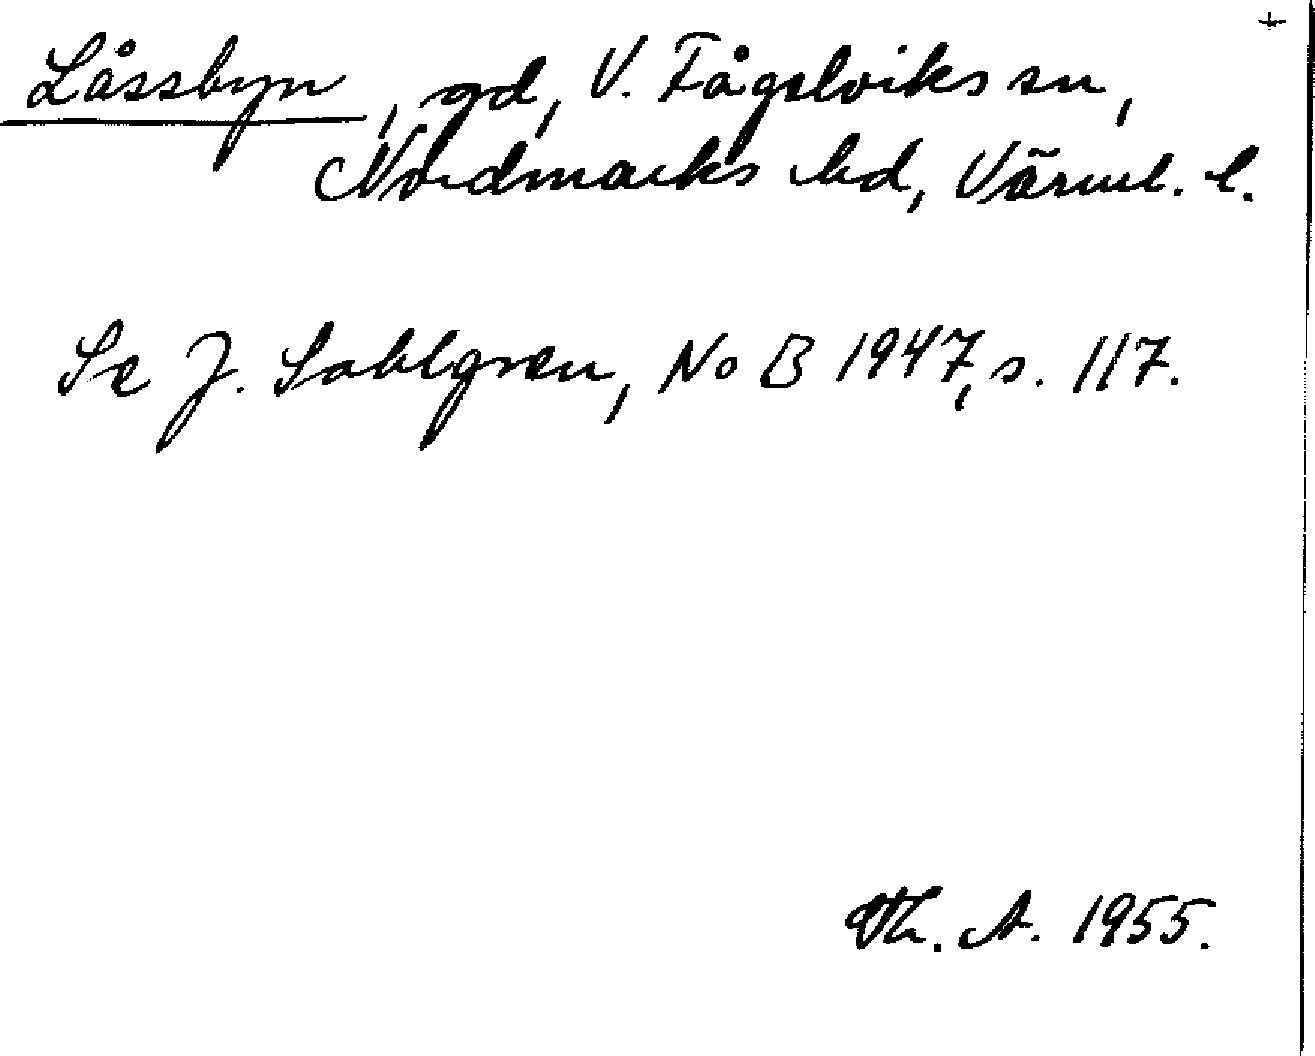 +
Låssbyn, gd, V. Fågelviks sn,
Nordmarks hd, Värml. l.
Se J. Sahlgren, NoB 1947, s. 117.
Th. A. 1955.